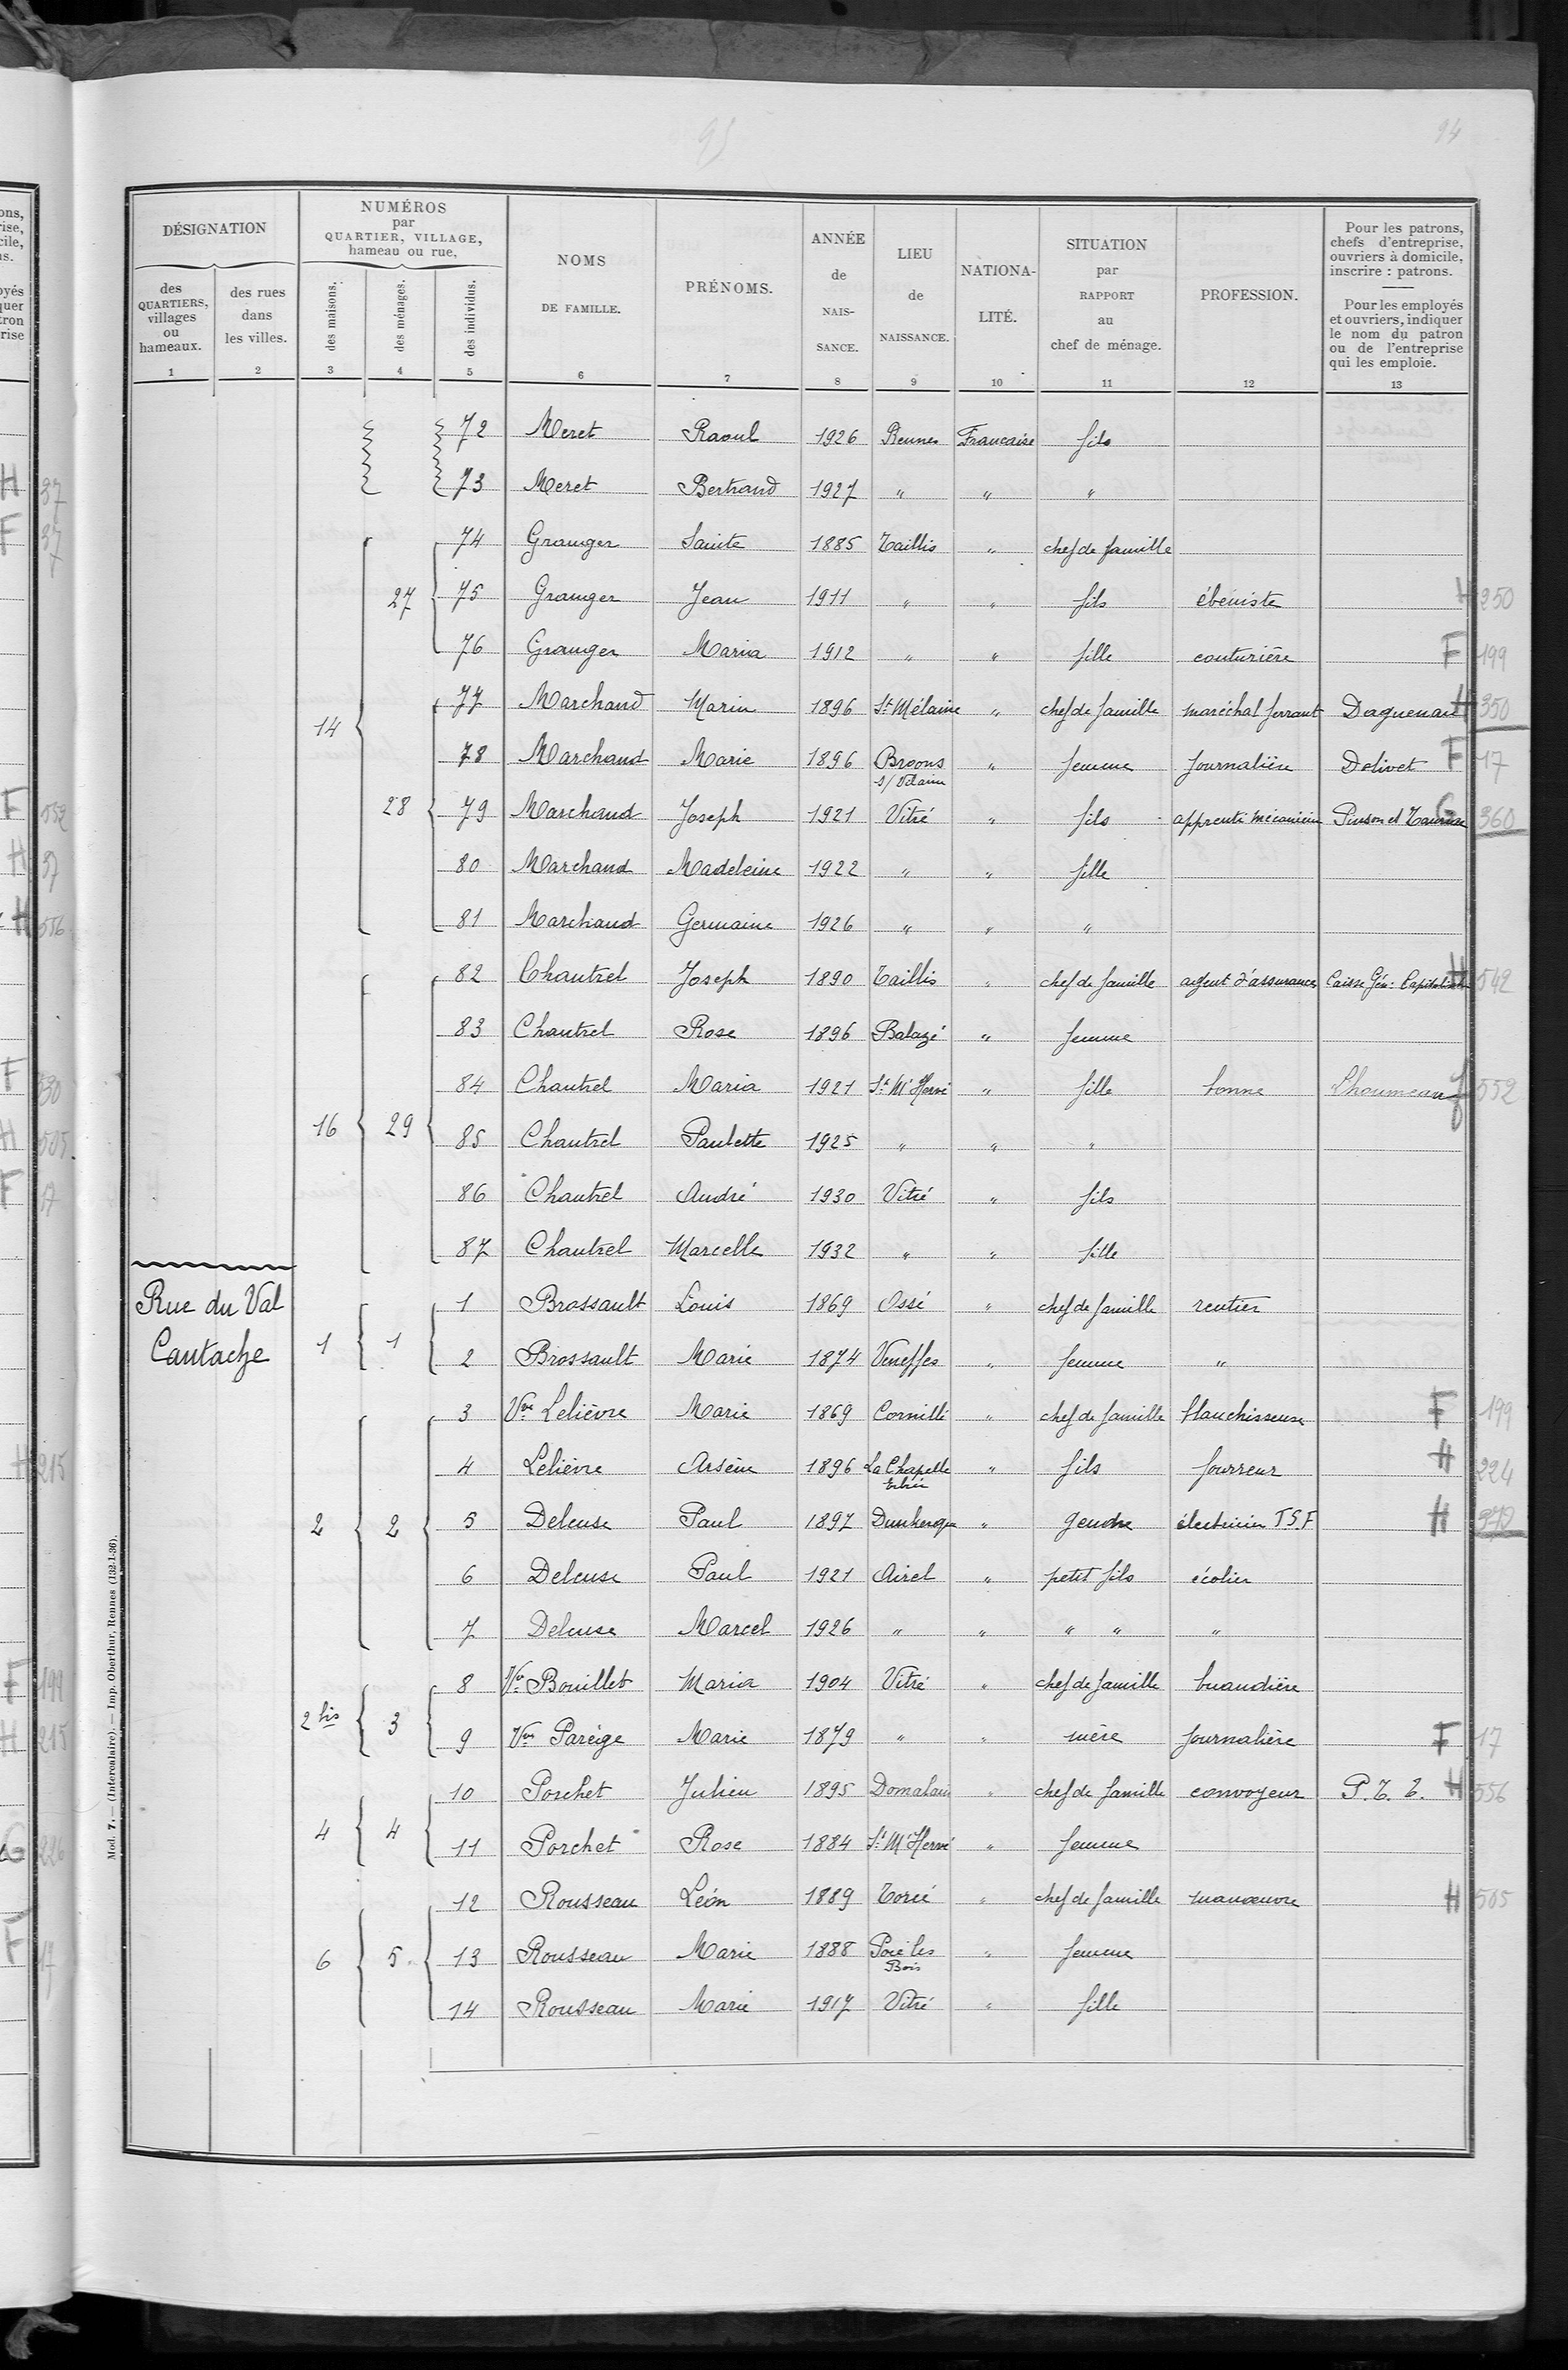 95
94
DÉSIGNATION
NUMÉROS
par
QUARTIER, VILLAGE,
hameau ou rue,
des
QUARTIERS,
villages
ou
hameaux.
des rues
dans
les villes.
des maisons.
des ménages.
des individus.
NOMS
DE FAMILLE.
PRÉNOMS.
ANNÉE
de
NAIS-
SANCE.
LIEU
de
NAISSANCE.
NATIONA-
LITÉ.
SITUATION
par
RAPPORT
au
chef de ménage.
PROFESSION.
Pour les patrons,
chefs d'entreprise,
ouvriers à domicile,
inscrire : patrons.
Pour les employés
et ouvriers, indiquer
le nom du patron
ou de l'entreprise
qui les emploie.
1 2 3 4 5 6 7 8 9 10 11 12 13
72 Meret Raoul 1926 Rennes Francaise fils
73 Meret Bertrand 1927 " " "
74 Granger Sainte 1885 Taillis " chef de famille
27 75 Granger Jean 1911 " " fils ébéniste H 250
76 Granger Maria 1912 " " fille couturière F 199
14 77 Marchand Marin 1896 St Mélaine " chef de famille maréchal ferrant H 350
78 Marchand Marie 1896 Broons s/ Vilaine " femme journalière Delivet F 17
28 79 Marchand Joseph 1921 Vitré " fils apprenti mécanicien Pinson et G 360
80 Marchand Madeleine 1922 " " fille
81 Marchand Germaine 1926 " " "
82 Chantrel Joseph 1890 Taillis " chef de famille agent d'assurances Caisse Gén. H 542
83 Chantrel Rose 1896 Balazé " femme
84 Chantrel Maria 1921 St M' Hervé " fille bonne Lhoumeau f 552
16 29 85 Chantrel Paulette 1925 " " "
86 Chantrel André 1930 Vitré " fils
87 Chantrel Marcelle 1932 " " fille
Rue du Val
Cantache
1 1 1 Brossault Louis 1869 Ossé " chef de famille rentier
2 Brossault Marie 1874 Veneffles " femme "
3 Vve Lelièvre Marie 1869 Cornillé " chef de famille blanchisseuse F 199
4 Lelièvre Arsène 1896 La Chapelle Erbrée " fils fourreur H 224
2 2 5 Deleuse Paul 1897 Dunkerque " gendre électricien T S F H
6 Deleuse Paul 1921 Airel " petit fils écolier
7 Deleuse Marcel 1926 " " " " "
8 Vve Bouillet Maria 1904 Vitré " chef de famille buandière
2 bis 3 9 Vve Paréige Marie 1879 " " mère journalière F 17
10 Porchet Julien 1895 Domalain " chef de famille convoyeur P. T. T. H 556
4 4 11 Porchet Rose 1884 St M' Hervé " femme
12 Rousseau Léon 1889 Torcé " chef de famille manœuvre H 505
6 5 13 Rousseau Marie 1888 Pocé les Bois " femme
14 Rousseau Marie 1917 Vitré " fille
Mod. 7. — (Intercalaire). — Imp. Oberthur, Rennes (132-1-36).